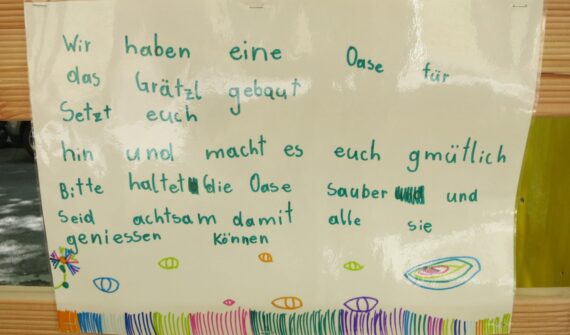 Wir haben eine Oase für
das Grätzl gebaut
Setzt euch
hin und macht es euch gmütlich
Bitte haltet die Oase sauber und
seid achtsam damit alle sie
geniessen können